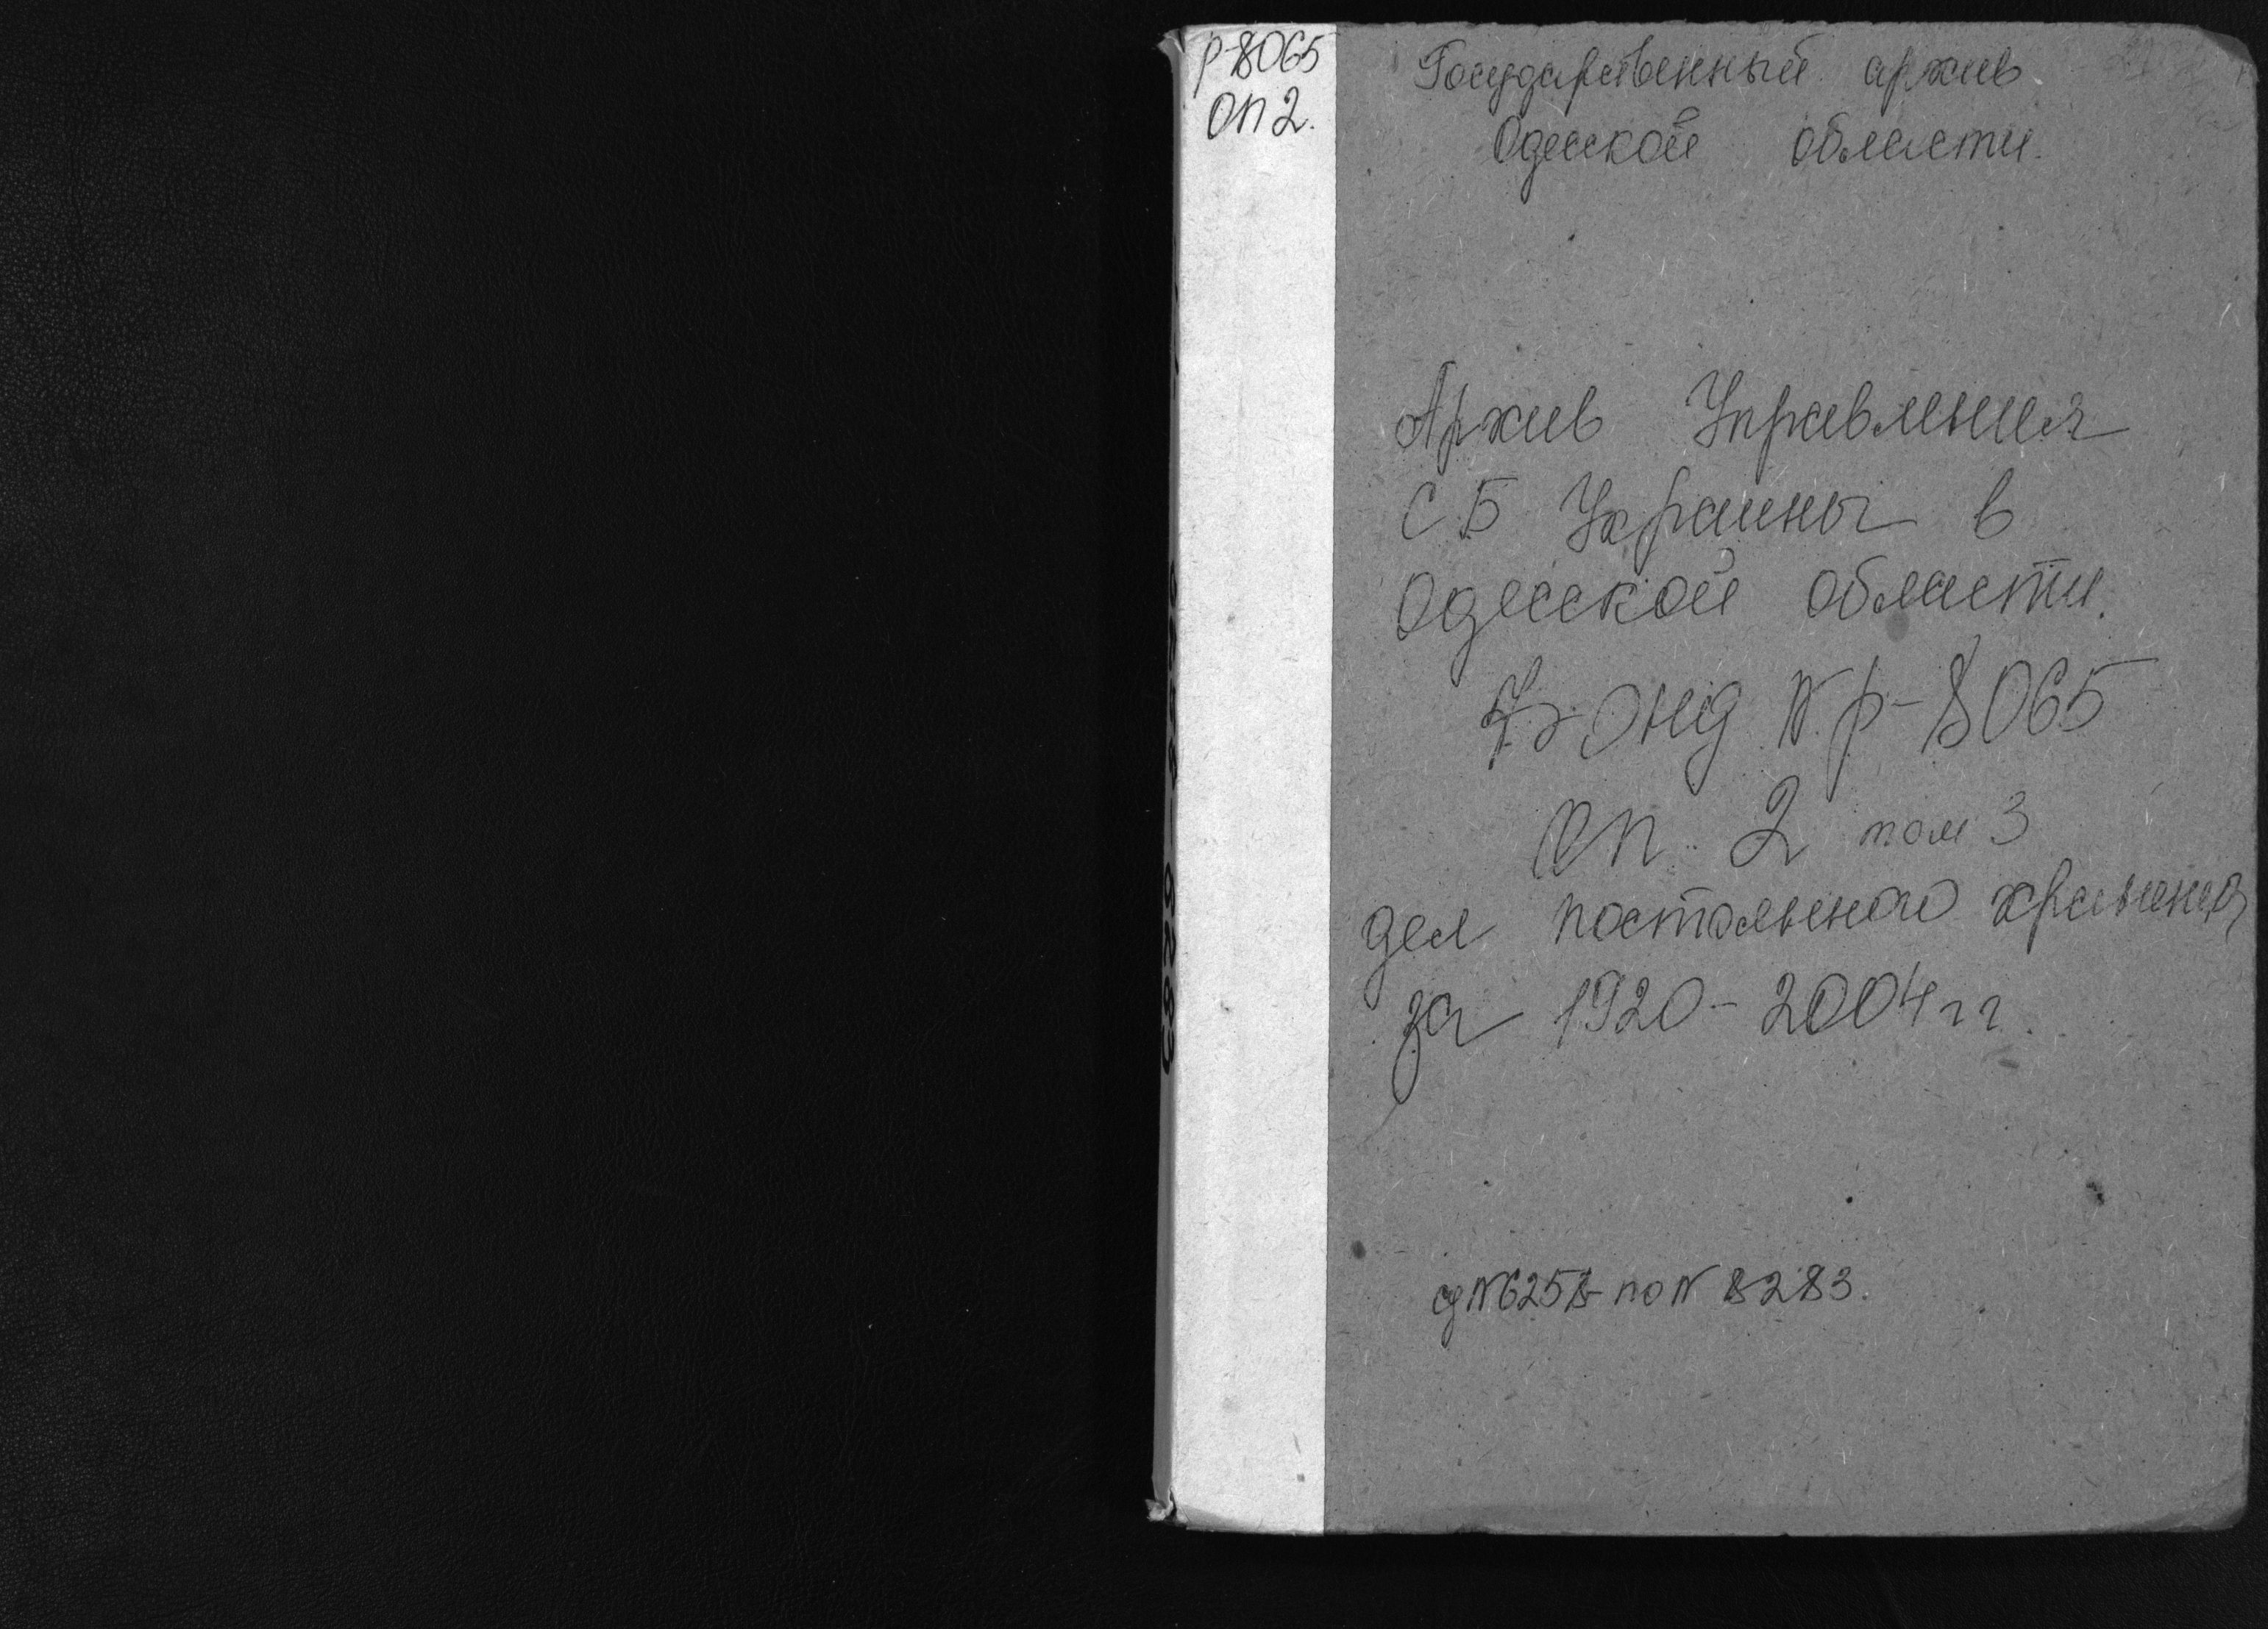 Р-8065
ОП 2.
Государственный архив
Одесской области.
Архив Управления
СБ Украины в
Одесской области.
Фонд N р-8065
ОП. 2 том 3
дел постоянного хранения
за 1920-2004гг.
ед N 6258 по N 8283.